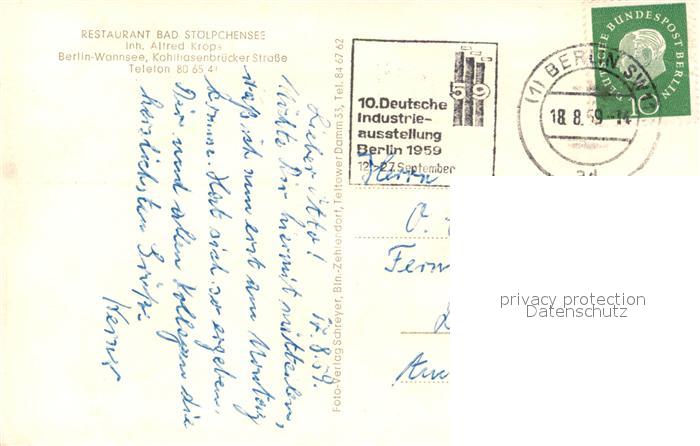 RESTAURANT BAD STÖLPCHENSEE
Inh. Alfred Krops
Berlin-Wannsee, Kohlhasenbrücker Straße
Telefon 80 65 41
17.8.59.
Lieber Otto!
Möchte Dir hiermit mitteilen,
daß ich nun erst am Montag
komme. Hat sich so ergeben.
Dir und allen Kollegen die
herzlichsten Grüße
Werner
Foto-Verlag Schreyer, Bln-Zehlendorf, Teltower Damm 33, Tel. 84 67 62
10. Deutsche
Industrie-
ausstellung
Berlin 1959
12.-27. September
(1) BERLIN SW
18.8.59-14
ad
DEUTSCHE BUNDESPOST BERLIN
10
Herrn
O.
Fern
privacy protection
Datenschutz